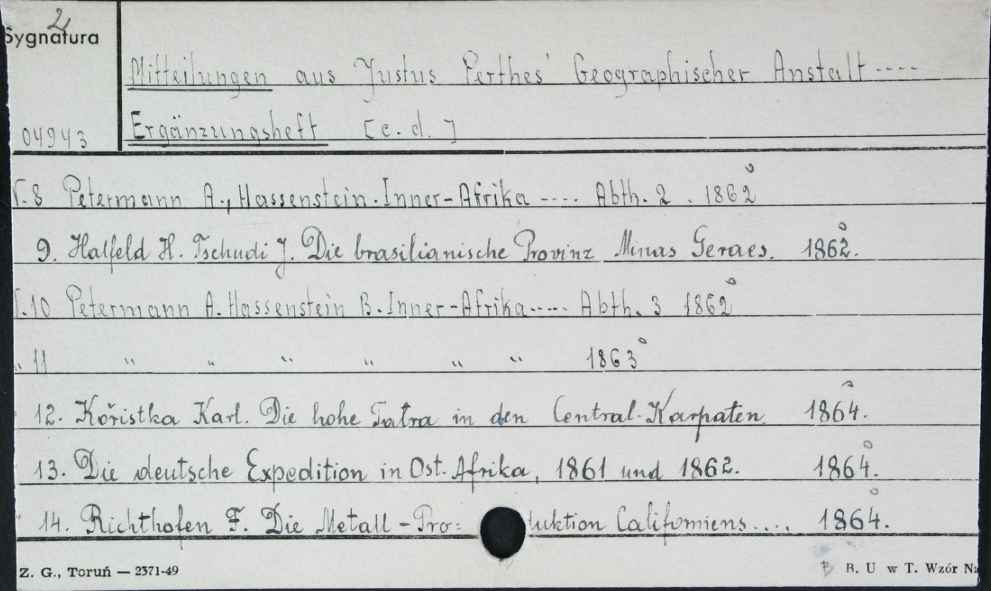 2
Sygnatura
Mitteilungen aus Justus Perthes' Geographischer Anstalt ....
04943
Ergänzungsheft [c.d.]
8 Petermann A., Hassenstein. Inner-Afrika .... Abth. 2. 1862°
9. Halfeld H. Tschudi J. Die brasilianische Provinz Minas Geraes. 1862°.
10 Petermann A. Hassenstein B. Inner-Afrika..... Abth. 3 1862°
" 11 " " " " " " 1863°
12. Kořistka Karl. Die hohe Tatra in den Central-Karpaten. 1864.
13. Die deutsche Expedition in Ost. Afrika, 1861 und 1862. 1864°.
14. Richthofen F. Die Metall-Pro: duktion Californiens.... 1864°.
Z. G., Toruń — 2371-49
B. U w T. Wzór